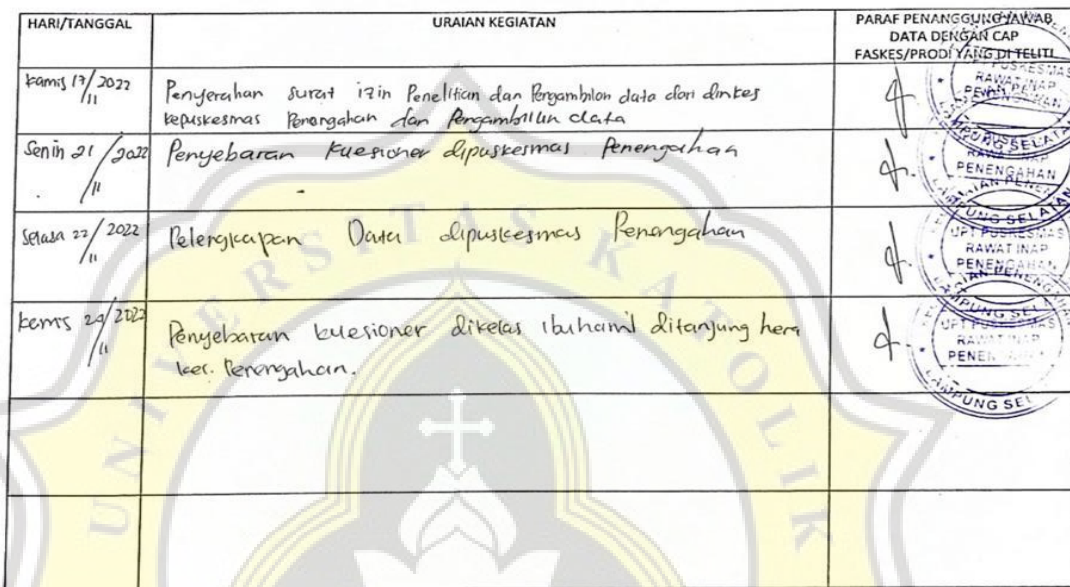 HARI/TANGGAL
URAIAN KEGIATAN
PARAF PENANGGUNG JAWAB
DATA DENGAN CAP
FASKES/PRODI YANG DI TELITI
kamis 17/11 2022
Penyerahan surat izin Penelitian dan Pengambilan data dari dinkes
kepuskesmas Penengahan dan Pengambilan data
UPT PUSKESMAS
RAWAT INAP
PENENGAHAN
LAMPUNG SELATAN
Senin 21/11 2022
Penyebaran kuesioner dipuskesmas Penengahan
RAWAT INAP
PENENGAHAN
LAMPUNG SELATAN
Selasa 22/11 2022
Pelengkapan Data dipuskesmas Penengahan
UPT PUSKESMAS
RAWAT INAP
PENENGAHAN
LAMPUNG SEL
kamis 24/11 2022
Penyebaran kuesioner dikelas ibuhamil ditanjung hera
kec. Penengahan.
UPT PUSKESMAS
RAWAT INAP
LAMPUNG SEL
UNIVERSITAS KATOLIK